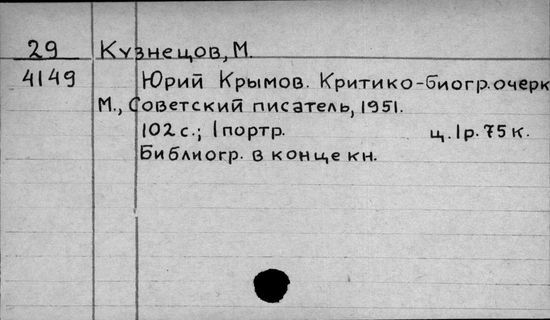 29 Кузнецов, М.
4149 Юрий Крымов. Критико-биогр. очерк
М., Советский писатель, 1951.
102 с.; 1 портр. ц. 1 р. 75 к.
Библиогр. в конце кн.